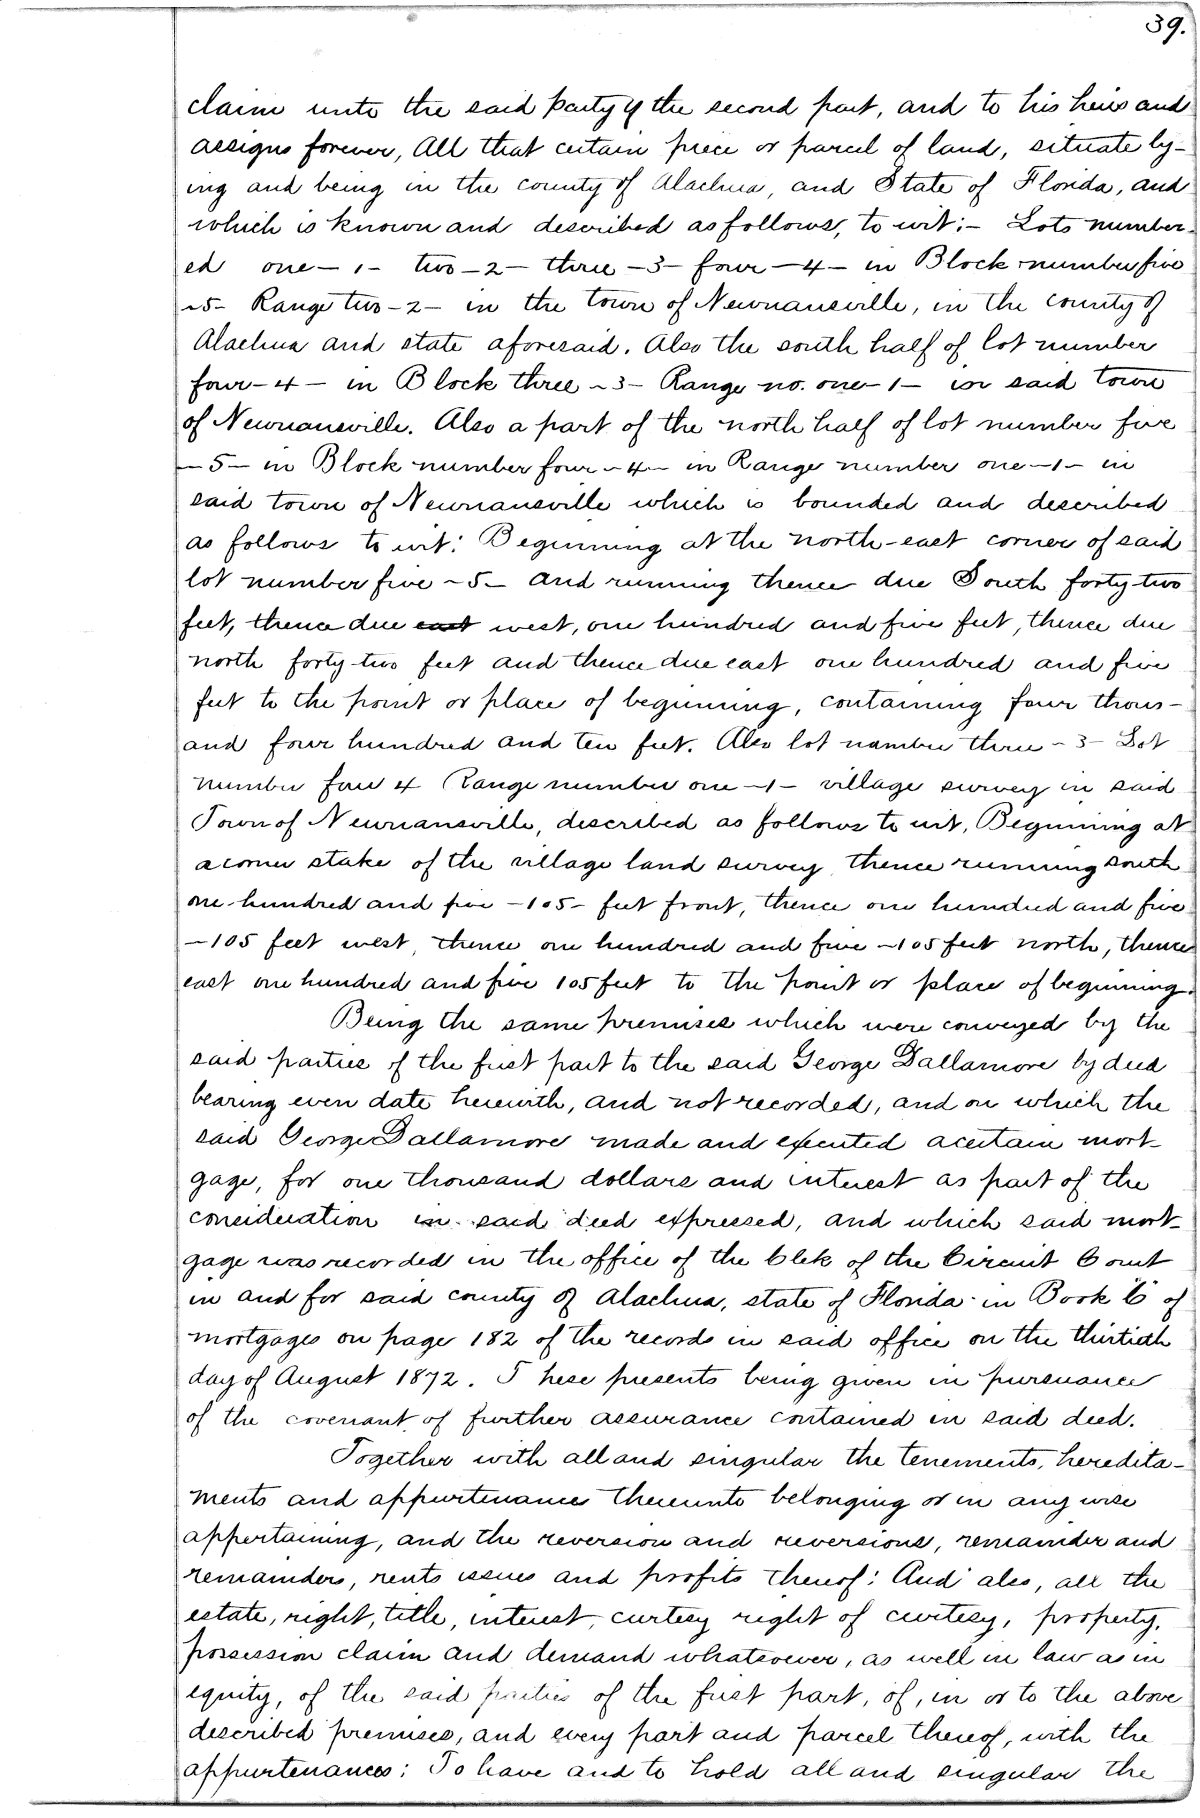 39.
claim unto the said party of the second part, and to his heirs and
assigns forever, All that certain piece or parcel of land, situate ly-
ing and being in the county of Alachua, and State of Florida, and
which is known and described as follows, to wit;- Lots number-
ed one-1- two-2- three-3- four-4- in Block number five
-5- Range two-2- in the town of Newnansville, in the county of
Alachua and state aforesaid. Also the south half of lot number
four-4- in Block three-3- Range no. one-1- in said town
of Newnansville. Also a part of the north half of lot number five
-5- in Block number four-4- in Range number one-1- in
said town of Newnansville which is bounded and described
as follows to wit: Beginning at the north-east corner of said
lot number five -5- and running thence due South forty-two
feet, thence due east west, one hundred and five feet, thence due
north forty-two feet and thence due east one hundred and five
feet to the point or place of beginning, containing four thous-
and four hundred and ten feet. Also lot number three-3- Lot
number four 4 Range number one-1- village survey in said
Town of Newnansville, described as follows to wit, Beginning at
a corner stake of the village land survey thence running south
one hundred and five -105- feet front, thence one hundred and five
-105 feet west, thence one hundred and five -105 feet north, thence
east one hundred and five 105 feet to the point or place of beginning.
Being the same premises which were conveyed by the
said parties of the first part to the said George Dallamore by deed
bearing even date herewith, and not recorded, and on which the
said George Dallamore made and executed a certain mort-
gage, for one thousand dollars and interest as part of the
consideration in said deed expressed, and which said mort-
gage was recorded in the office of the Clek of the Circuit Court
in and for said county of Alachua, state of Florida in Book "C" of
mortgages on page 182 of the records in said office on the thirtieth
day of August 1872. These presents being given in pursuance
of the covenant of further assurance contained in said deed.
Together with all and singular the tenements, heredita-
ments and appurtenances thereunto belonging or in any wise
appertaining, and the reversion and reversions, remainder and
remainders, rents issues and profits thereof: And also, all the
estate, right, title, interest, curtesy right of curtesy, property,
possession claim and demand whatsoever, as well in law as in
equity, of the said parties of the first part, of, in or to the above
described premises, and every part and parcel thereof, with the
appurtenances: To have and to hold all and singular the